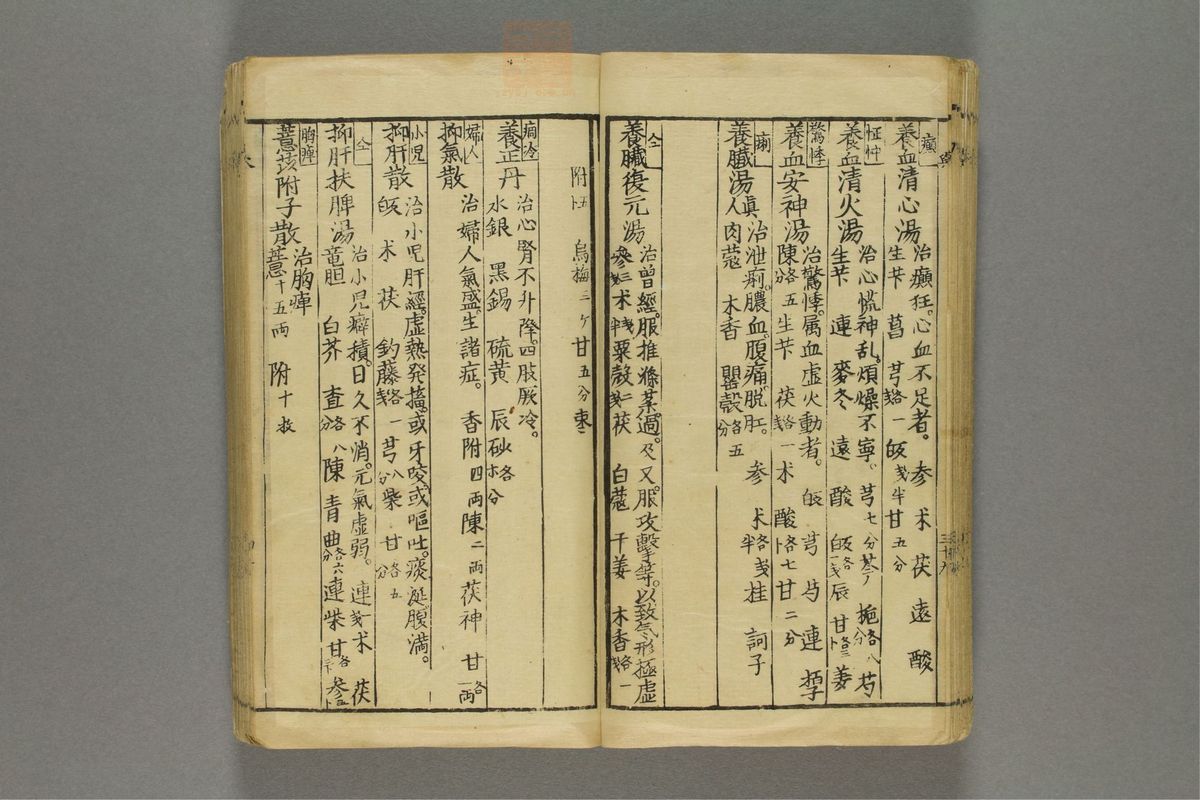 癲
養血清心湯 治癲狂。心血不足者。参 朮 茯 遠 酸
生芐 菖 芎各一戔 皈戔半 甘五分
怔忡
養血清火湯 治心慌神乱。煩燥不寧。芎七分 芩 梔各八分 芍
生芐 連 麥冬 遠 酸 皈各一戔 辰 甘各三卜 姜
驚悸
養血安神湯 治驚悸。属血虚火動者。皈 芎 芍 連
陳各五分 生芐 茯各一戔 朮 酸各七卜 甘二分
痢
養臓湯 治泄痢。膿血。腹痛。脱肛。参 朮各半戔 桂 訶子
真人 肉蔻 木香 罌殼各五分
仝
養臓復元湯 治曽經。服推滌菜過。及又服。攻擊等。以致气形極虚
参三戔 朮戔半 粟殼二戔 茯 白蔻 干姜 木香各一戔
附五卜 烏梅三ケ 甘五分 棗二
痼冷
養正丹 治心腎不升降。四肢厥冷。
水銀 黒錫 硫黄 辰砂各ホ分
婦人
抑氣散 治婦人氣盛。生諸症。香附四両 陳二両 茯神 甘各一両
小児
抑肝散 治小児肝經。虚熱発搐。或牙咬。或嘔吐。痰涎。腹満。
皈 朮 茯 釣藤各一戔 芎八分 柴 甘各五分
仝
抑肝扶脾湯 治小児癖積。日久不消。元氣虚弱。連一戔 朮 茯
竜胆 白芥 査各八分 陳 青 曲各六分 連 柴 甘各三卜 参五卜
胸痺
薏苡附子散 治胸痺
薏十五両 附十枚